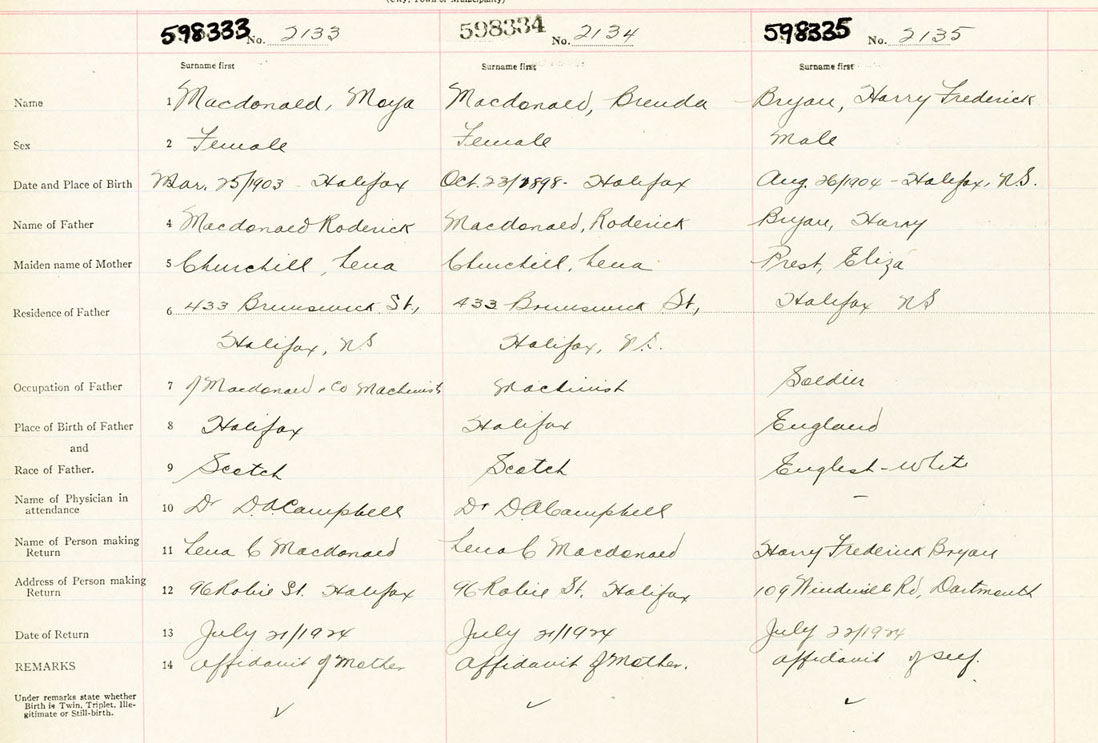 (City, Town or Municipality)
598333 No. 2133 598334 No. 2134 598335 No. 2135
Surname first Surname first Surname first
Name 1 Macdonald, Moya Macdonald, Brenda Bryan, Harry Frederick
Sex 2 Female Female Male
Date and Place of Birth Mar. 25/1903 - Halifax Oct. 23/1898 - Halifax Aug. 26/1904 - Halifax, N.S.
Name of Father 4 Macdonald Roderick Macdonald, Roderick Bryan, Harry
Maiden name of Mother 5 Churchill, Lena Churchill, Lena Prest, Eliza
Residence of Father 6 433 Brunswick St., 433 Brunswick St., Halifax NS
Halifax, NS Halifax, N.S.
Occupation of Father 7 of Macdonald & Co Machinists Machinist Soldier
Place of Birth of Father 8 Halifax Halifax England
and
Race of Father. 9 Scotch Scotch English-White
Name of Physician in
attendance 10 Dr D.A. Campbell Dr D A Campbell -
Name of Person making
Return 11 Lena C Macdonald Lena C Macdonald Harry Frederick Bryan
Address of Person making
Return 12 96 Robie St. Halifax 96 Robie St. Halifax 109 Windmill Rd, Dartmouth
Date of Return 13 July 21/1924 July 21/1924 July 22/1924
REMARKS 14 Affidavit of Mother Affidavit of Mother. Affidavit of self.
Under remarks state whether
Birth is Twin, Triplet, Ille-
gitimate or Still-birth. ✓ ✓ ✓